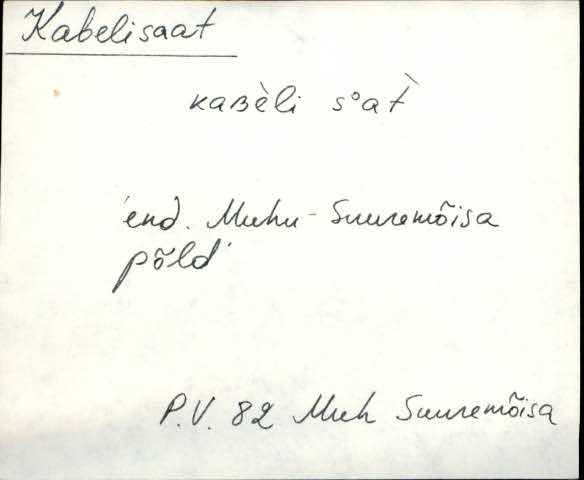 Kabelisaat
kaʙèli s°at̀
'end. Muhu-Suuremõisa
põld'
P.V. 82 Muh Suuremõisa